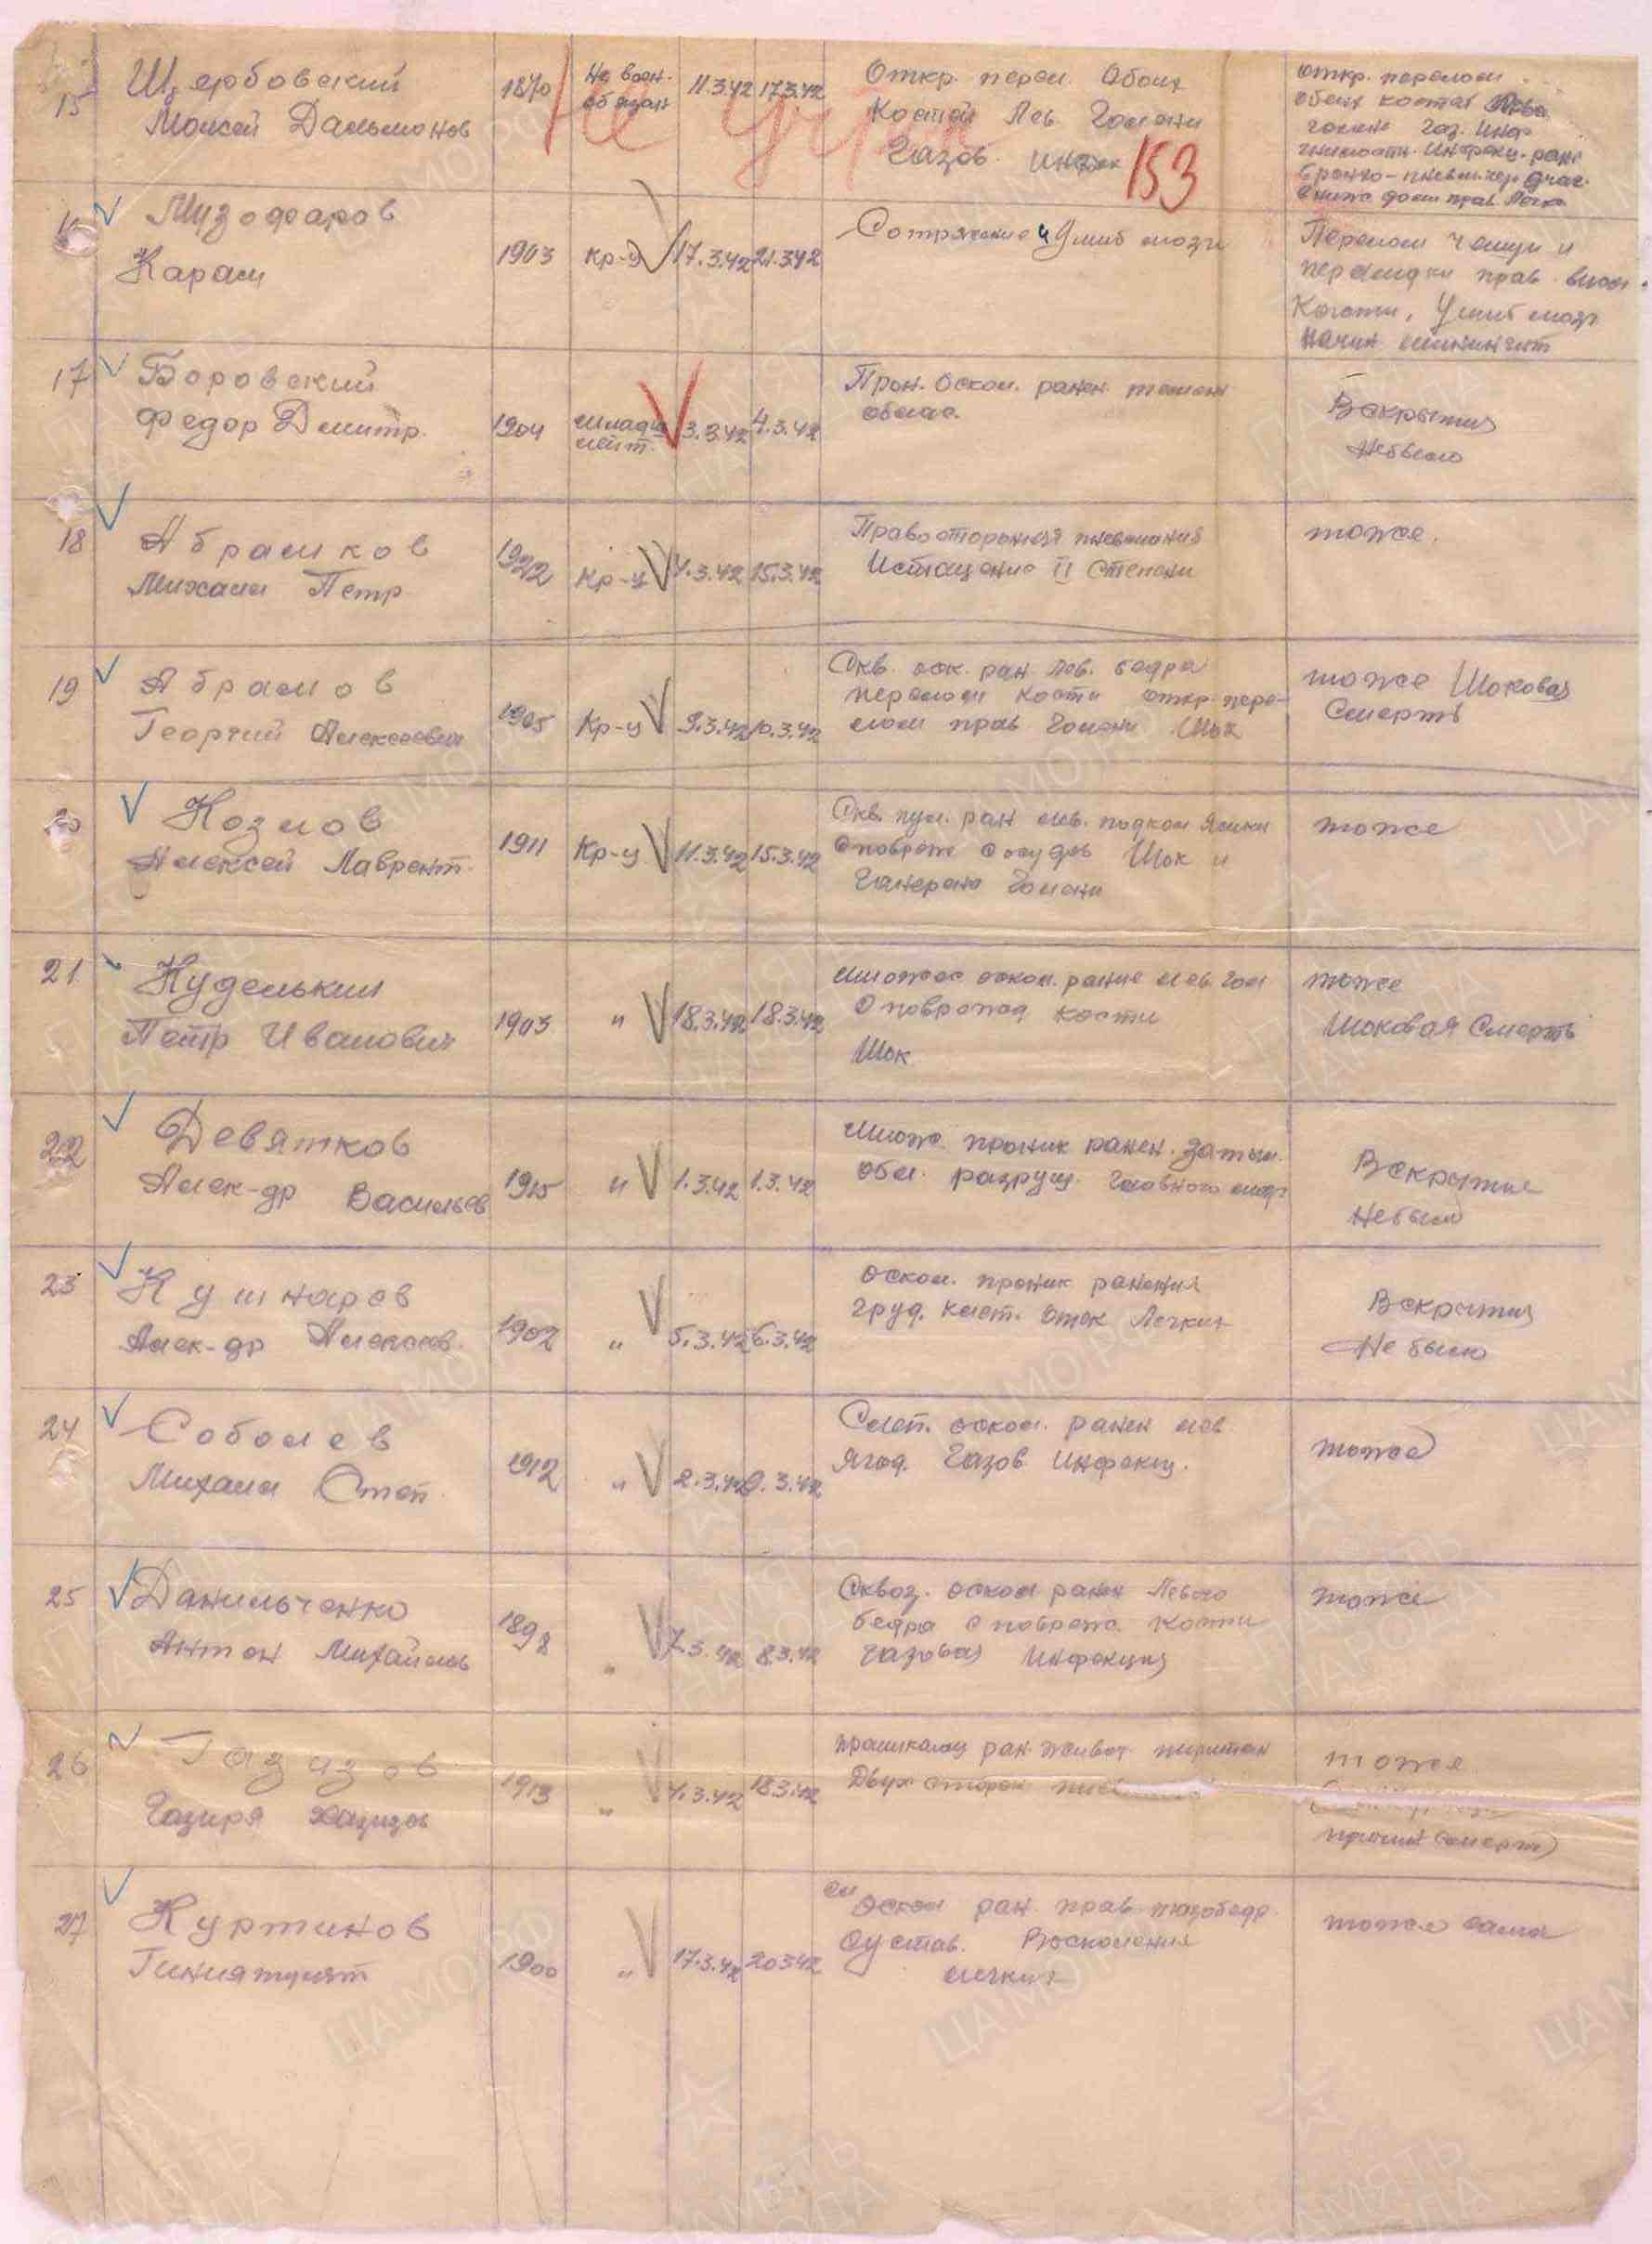 15 Щербовский 1870 Не воен. 11.3.42 17.3.42 Откр. перел. Обоих откр. перелом
Моисей обязан Костей Лев. Голени обеих костей
Не учит
Газов. Инфек 153 голени Газ. Инф
16 Музофаров Сотрясение и Ушиб мозга Перелом чешуи и
Карам 1903 Кр-ц 17.3.42 21.3.42 прав. височ.
Кости, Ушиб мозга
начин менингит
17 Боровский Прон. Оскол. ранен. темен Вскрытия
Федор Дмитр. 1904 Младш 3.3.42 4.3.42 облас. Небыло
лейт.
18 Абрамков Правосторонняя пневмония тоже.
Михаил Петр 1922 Кр-ц 4.3.42 15.3.42 Истощение II Степени
19 Абрамов Скв. оск. ран лев. бедра тоже Шоковая
Георгий Алексеевич 1905 Кр-ц 9.3.42 10.3.42 перелом кости откр. пере- Смерть
лом прав Голени Шок
20 Козлов Скв. пул. ран лев. подкол ямки тоже
Алексей Лаврент. 1911 Кр-ц 11.3.42 15.3.42 с поврежд сосудов Шок и
Голени
21 Куделькин множес оскол. ранне лев. гол тоже
Петр Иванович 1903 " 18.3.42 18.3.42 с поврежд кости Шоковая Смерть
Шок
22 Девятков множ. проник ранен. затыл. Вскрытие
Алек-др Васильев 1915 " 1.3.42 1.3.42 обл. разруш. Головного мозг Небыло
23 Кушнарев оскол. проник ранения Вскрытия
Алек-др Алексеев. 1902 " 5.3.42 6.3.42 груд. клет. Отек Легких Не было
24 Соболев Слеп. оскол. ранен лев тоже
Михаил Степ. 1912 " 2.3.42 9.3.42 ягод. Газов Инфекц.
25 Данильченко Сквоз. оскол ранен Левого тоже
Антон Михайлов 1898 " 7.3.42 8.3.42 бедра с поврежд. Кости
газовая Инфекция
26 Газизов ран. живот. тоже
Хазизов 1913 " 4.3.42 18.3.42 Двух сторон
27 Куртинов оскол ран. прав тазобедр. тоже
1900 " 17.3.42 20.3.42 Сустав. Воспаления
легких
ЦАМО РФ
ПАМЯТЬ
НАРОДА